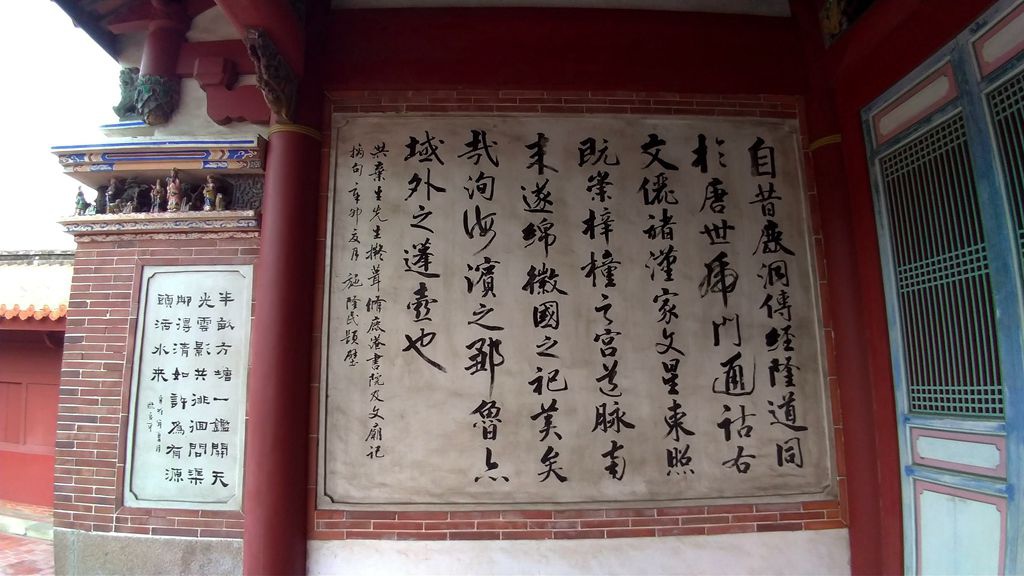 自昔鹿洞傳經隆道同
於唐世虎門通詁右
文僊諸漢家文星東照
既崇梓橦之宮道脉南
来遂綿徽國之祀美矣
哉洵海濱之鄒魯亦
域外之蓬壺也
洪棄生先生撰葺脩鹿港書院及文廟記
摘句辛卯夏月施隆民題壁
半畝方塘一鑑開天
光雲影共徘徊問渠
那得清如許為有源
頭活水來